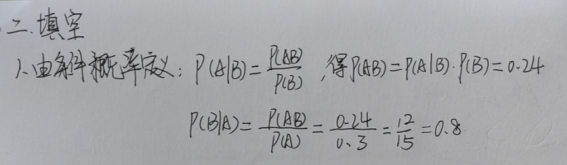 二、填空
1、由条件概率定义：P(A|B)=P(AB)/P(B)，得P(AB)=P(A|B)·P(B)=0.24
P(B|A)=P(AB)/P(A)=0.24/0.3=12/15=0.8